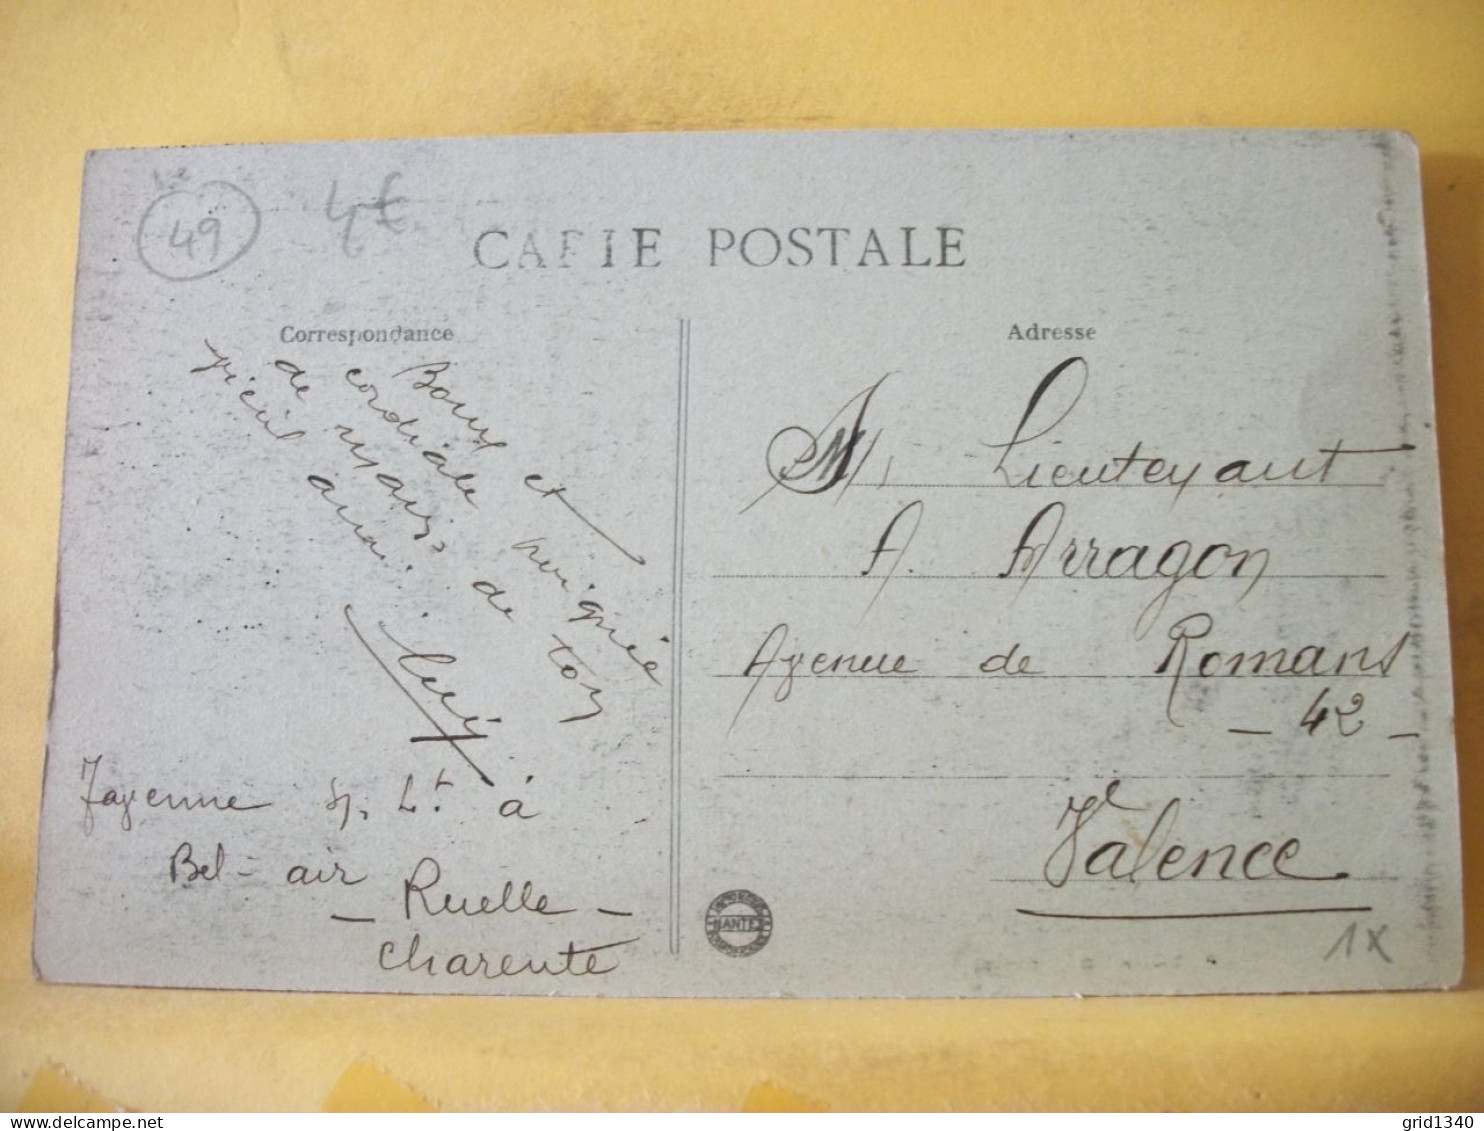 49
4€
CARTE POSTALE
Correspondance
Bonne et
cordiale poignée
de mains de ton
vieil ami.
Jayenne S/ Lt. à
Bel-air
- Ruelle -
Charente
Adresse
M. Lieutenant
A. Arragon
Avenue de Romans
- 42 -
Valence
NANTES
1x
grid1340